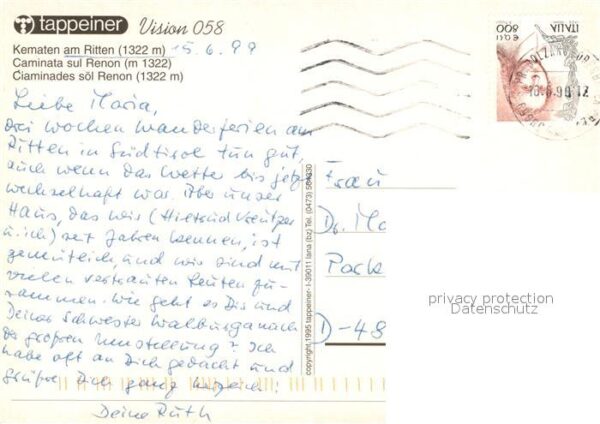 tappeiner Vision 058
Kematen am Ritten (1322 m) 15.6.99
Caminata sul Renon (m 1322)
Ciaminades söl Renon (1322 m)
Liebe Maria,
drei Wochen Wanderferien am
Ritten in Südtirol tun gut,
auch wenn das Wetter bis jetzt
wechselhaft war. Aber unser
Haus, das wir (Hiltrud Kreutzer
u. ich) seit Jahren kennen, ist
gemütlich, und wir sind mit
vielen vertrauten Leuten zu-
sammen. Wie geht es Dir und
Deiner Schwester Walburga nach
der großen Umstellung? Ich
habe oft an Dich gedacht und
grüße Dich ganz herzlich!
Deine Ruth
copyright 1995 tappeiner - I-39011 lana (bz) Tel. (0473)
ITALIA
800
Frau
Dr. Ma
Pock
D-48
privacy protection
Datenschutz